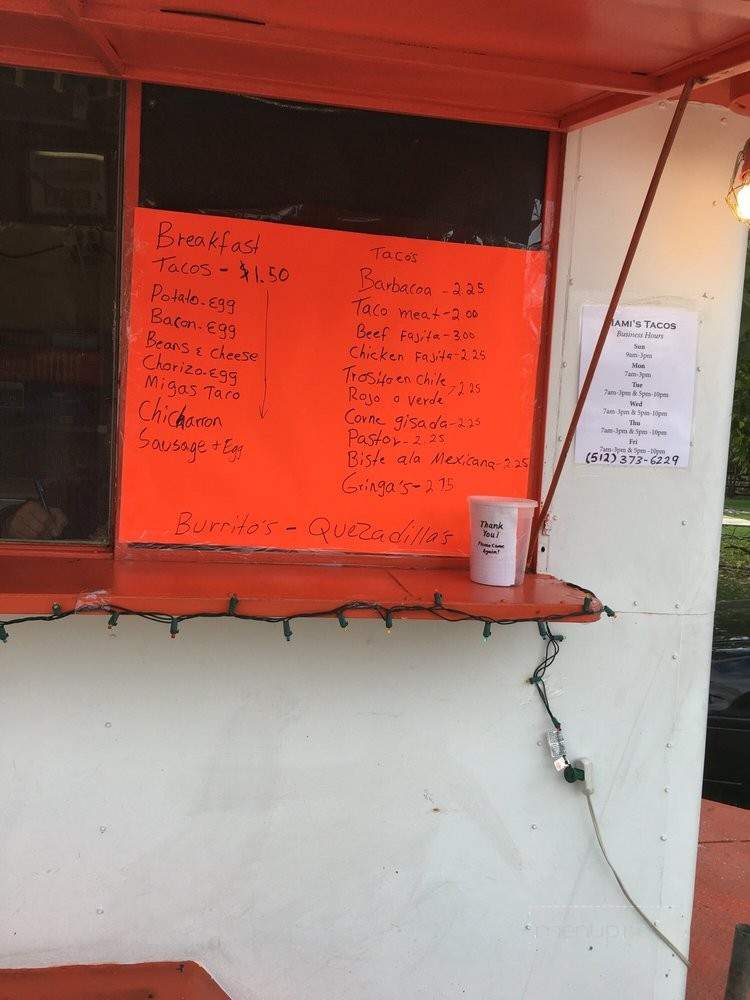 Breakfast
Tacos - $1.50
Potato-Egg
Bacon-Egg
Beans & cheese
Chorizo-Egg
Migas Taco
Chicharron
Sausage + Egg
Tacos
Barbacoa - 2.25
Taco meat - 2.00
Beef Fajita - 3.00
Chicken Fajita - 2.25
Trosito en chile
Rojo o verde > 2.25
Carne gisada - 2.25
Pastor - 2.25
Biste ala Mexicana - 2.25
Gringa's - 2.75
Burrito's - Quezadilla's
Thank
You!
Please Come
Again!
MAMI'S TACOS
Business Hours
Sun
9am-3pm
Mon
7am-3pm
Tue
7am-3pm & 5pm-10pm
Wed
7am-3pm & 5pm-10pm
Thu
7am-3pm & 5pm-10pm
Fri
7am-3pm & 5pm-10pm
(512) 373-6229